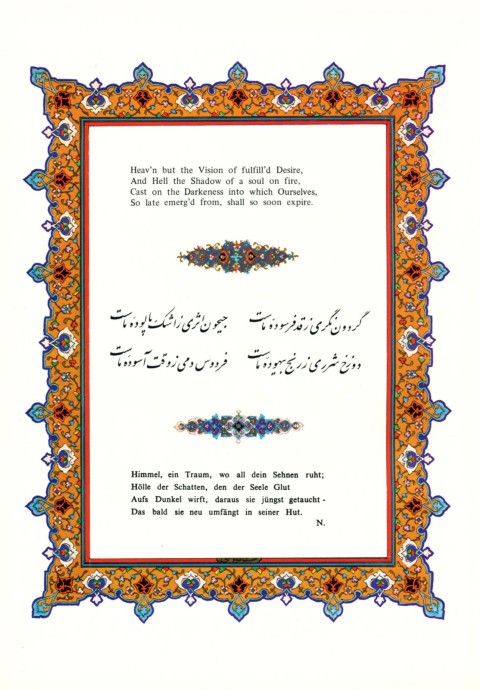 Heav'n but the Vision of fulfill'd Desire,
And Hell the Shadow of a soul on fire,
Cast on the Darkeness into which Ourselves,
So late emerg'd from, shall so soon expire.
گردون نگری ز قد فرسوده ماست جیحون اثری ز اشک پالوده ماست
دوزخ شرری ز رنج بیهوده ماست فردوس دمی ز وقت آسوده ماست
Himmel, ein Traum, wo all dein Sehnen ruht;
Hölle der Schatten, den der Seele Glut
Aufs Dunkel wirft, daraus sie jüngst getaucht -
Das bald sie neu umfängt in seiner Hut.
N.